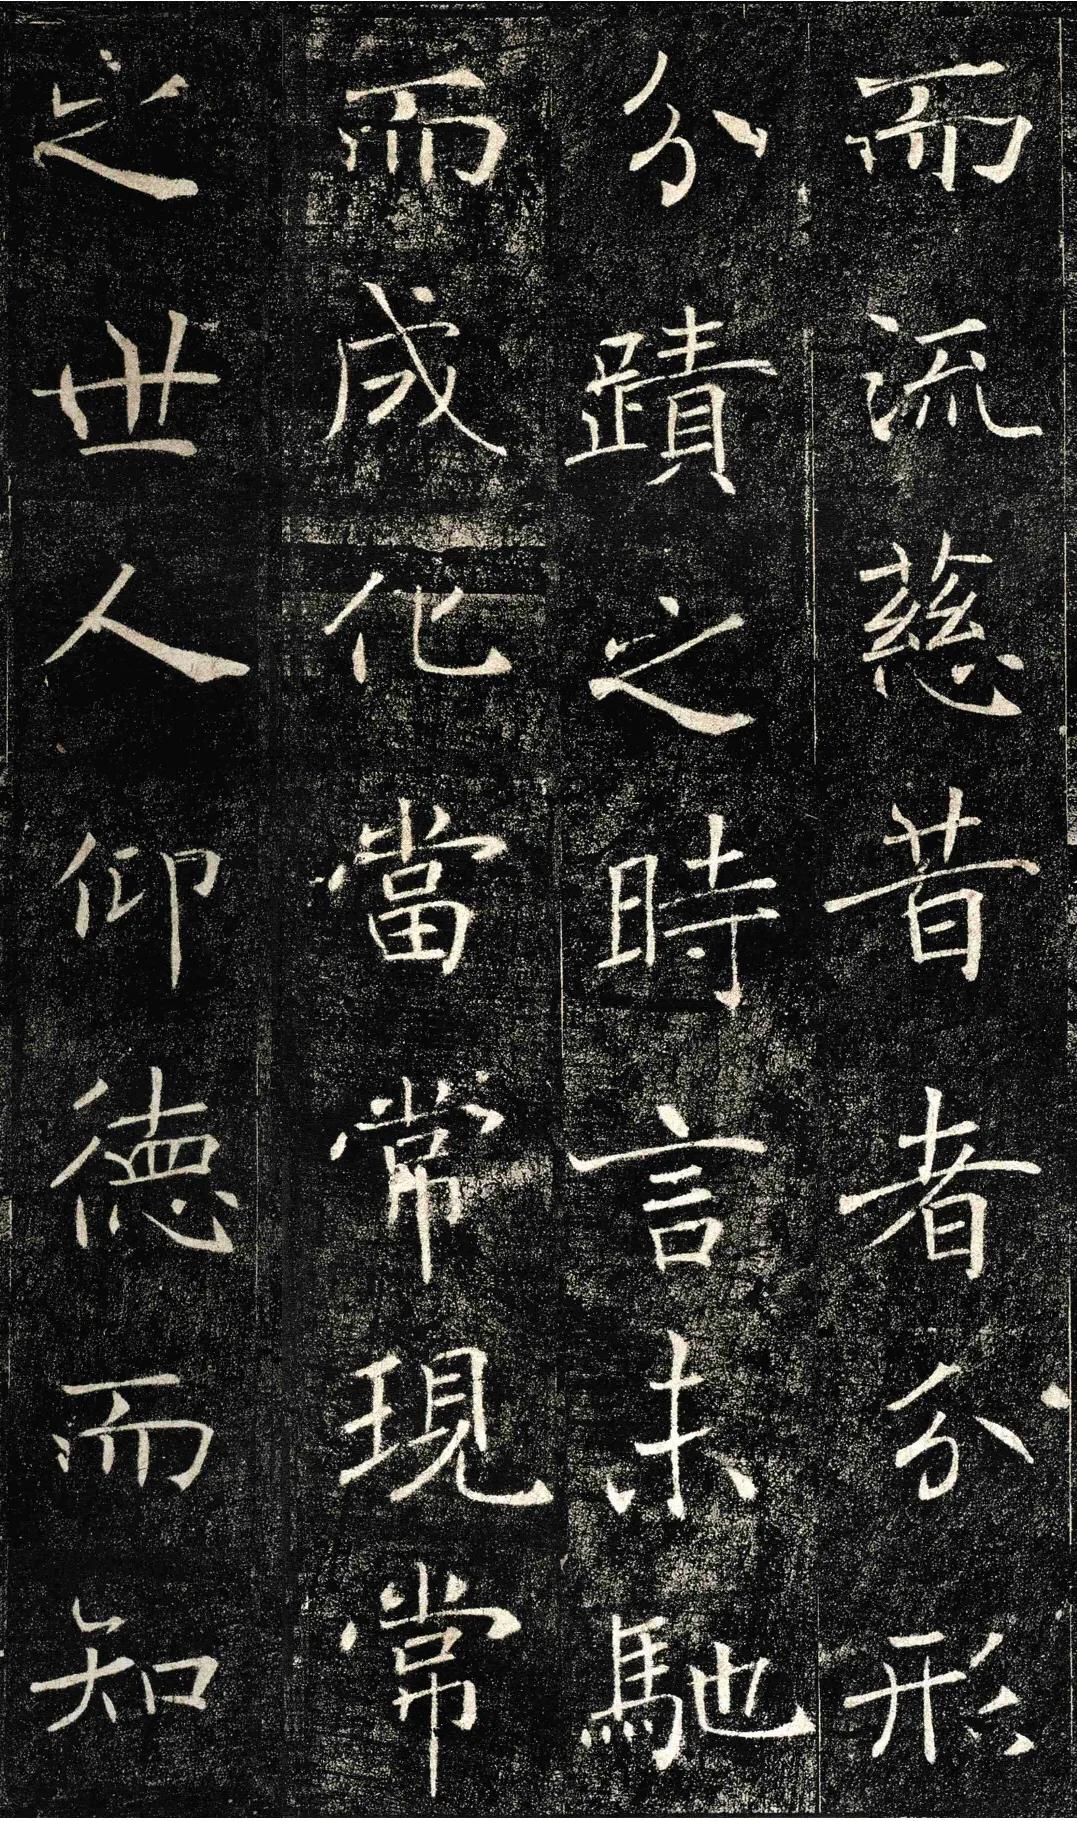 而流慈昔者分形
分蹟之時言未馳
而成化當常現常
之世人仰德而知